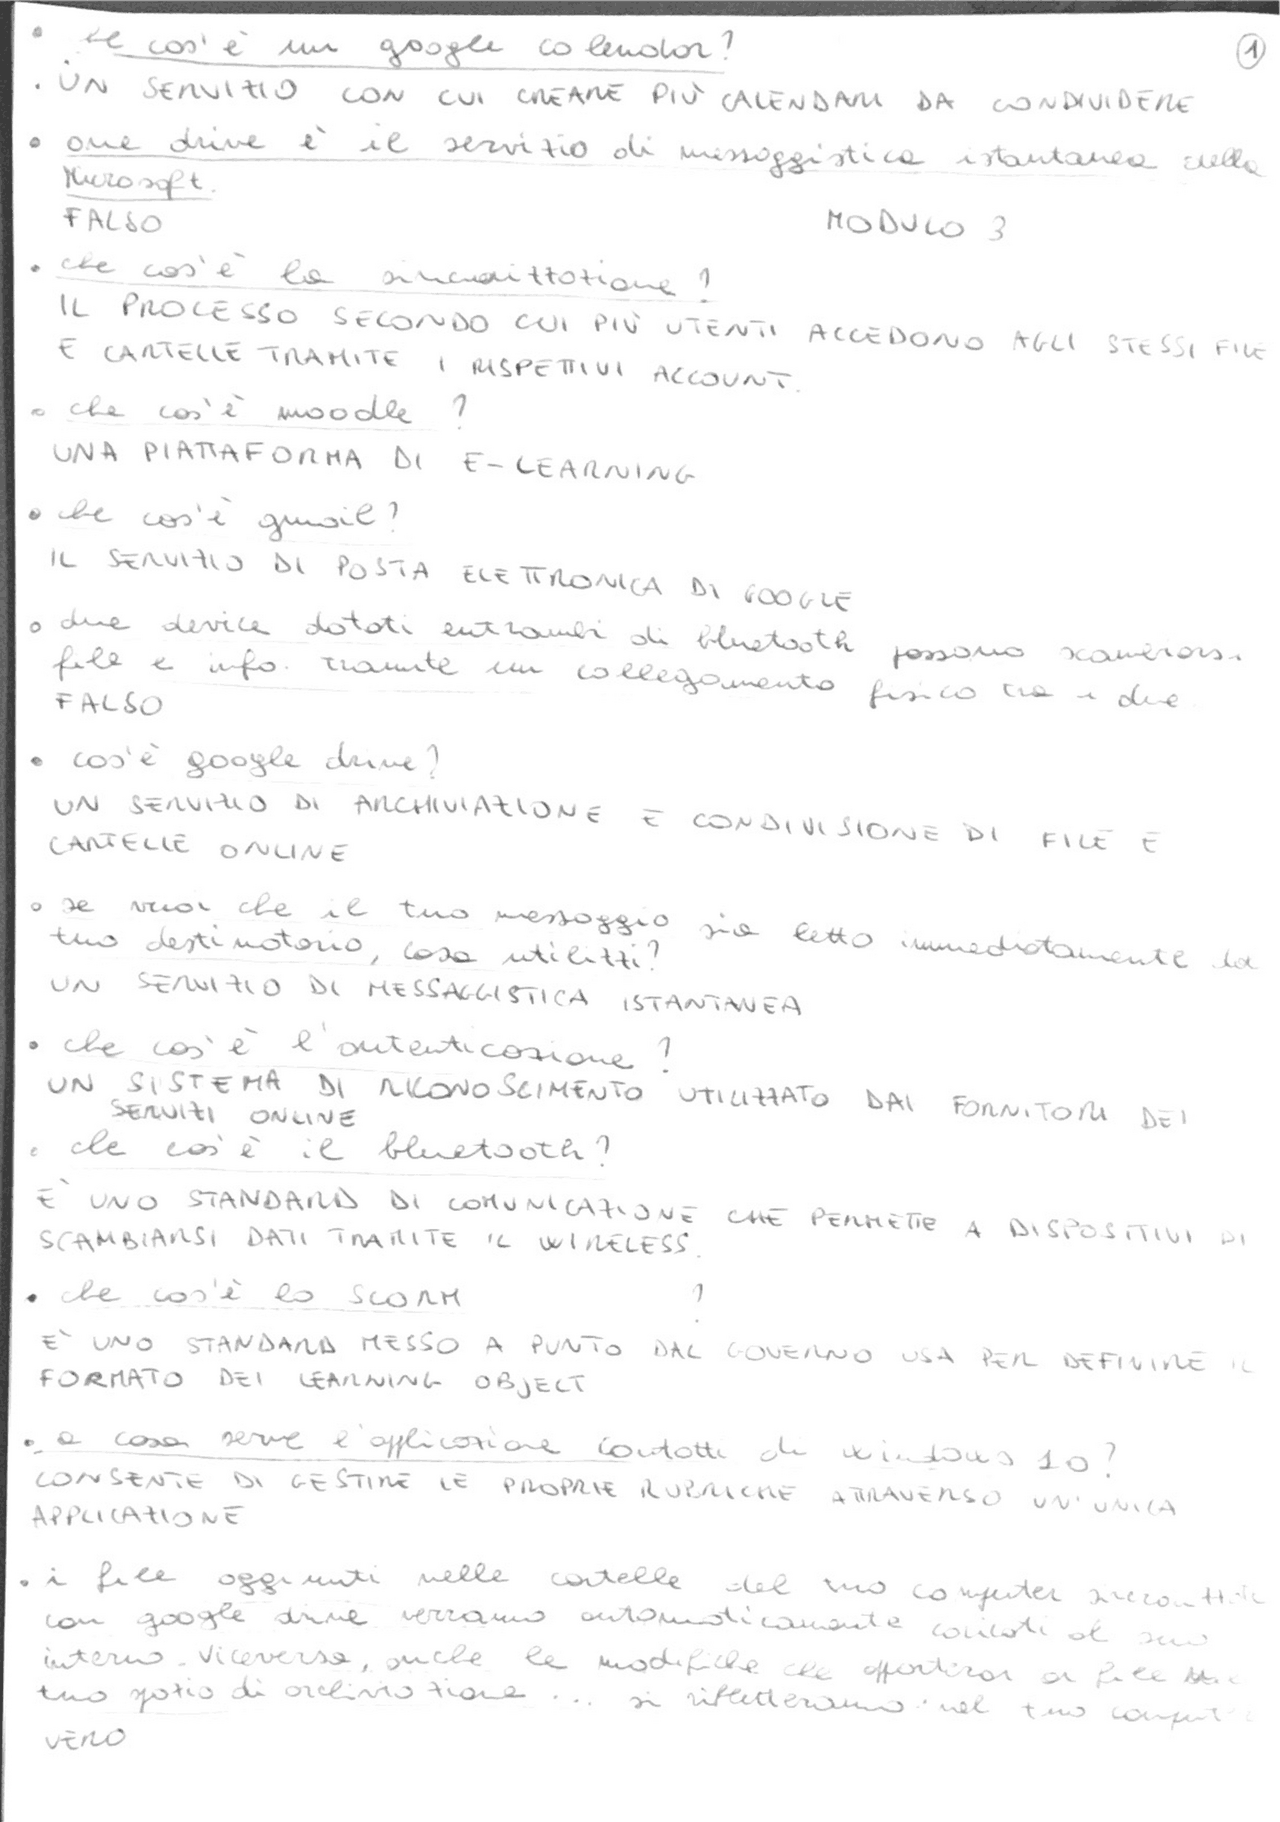 • che cos'è un google calendar?
①
. UN SERVIZIO CON CUI CREARE PIÙ CALENDARI DA CONDIVIDERE
• one drive è il servizio di messaggistica istantanea della
Microsoft.
FALSO
MODULO 3
• che cos'è la sincronizzazione?
IL PROCESSO SECONDO CUI PIÙ UTENTI ACCEDONO AGLI STESSI FILE
E CARTELLE TRAMITE I RISPETTIVI ACCOUNT.
• che cos'è moodle ?
UNA PIATTAFORMA DI E-LEARNING
• che cos'è gmail?
IL SERVIZIO DI POSTA ELETTRONICA DI GOOGLE
• due device dotati entrambi di bluetooth possono scambiarsi
file e info. tramite un collegamento fisico tra i due
FALSO
• cos'è google drive?
UN SERVIZIO DI ARCHIVIAZIONE E CONDIVISIONE DI FILE E
CARTELLE ONLINE
• se vuoi che il tuo messaggio sia letto immediatamente dal
tuo destinatario, cosa utilizzi?
UN SERVIZIO DI MESSAGGISTICA ISTANTANEA
• che cos'è l'autenticazione?
UN SISTEMA DI RICONOSCIMENTO UTILIZZATO DAI FORNITORI DEI
SERVIZI ONLINE
• che cos'è il bluetooth?
E' UNO STANDARD DI COMUNICAZIONE CHE PERMETTE A DISPOSITIVI DI
SCAMBIARSI DATI TRAMITE IL WIRELESS.
• che cos'è lo SCORM ?
E' UNO STANDARD MESSO A PUNTO DAL GOVERNO USA PER DEFINIRE IL
FORMATO DEI LEARNING OBJECT
• a cosa serve l'applicazione contatti di windows 10?
CONSENTE DI GESTIRE LE PROPRIE RUBRICHE ATTRAVERSO UN'UNICA
APPLICAZIONE
• i file aggiunti nelle cartelle del tuo computer
con google drive verranno automaticamente caricati al suo
interno. Viceversa, anche le modifiche che apporterai ai file
tuo spazio di archiviazione ... si rifletteranno nel tuo computer
VERO